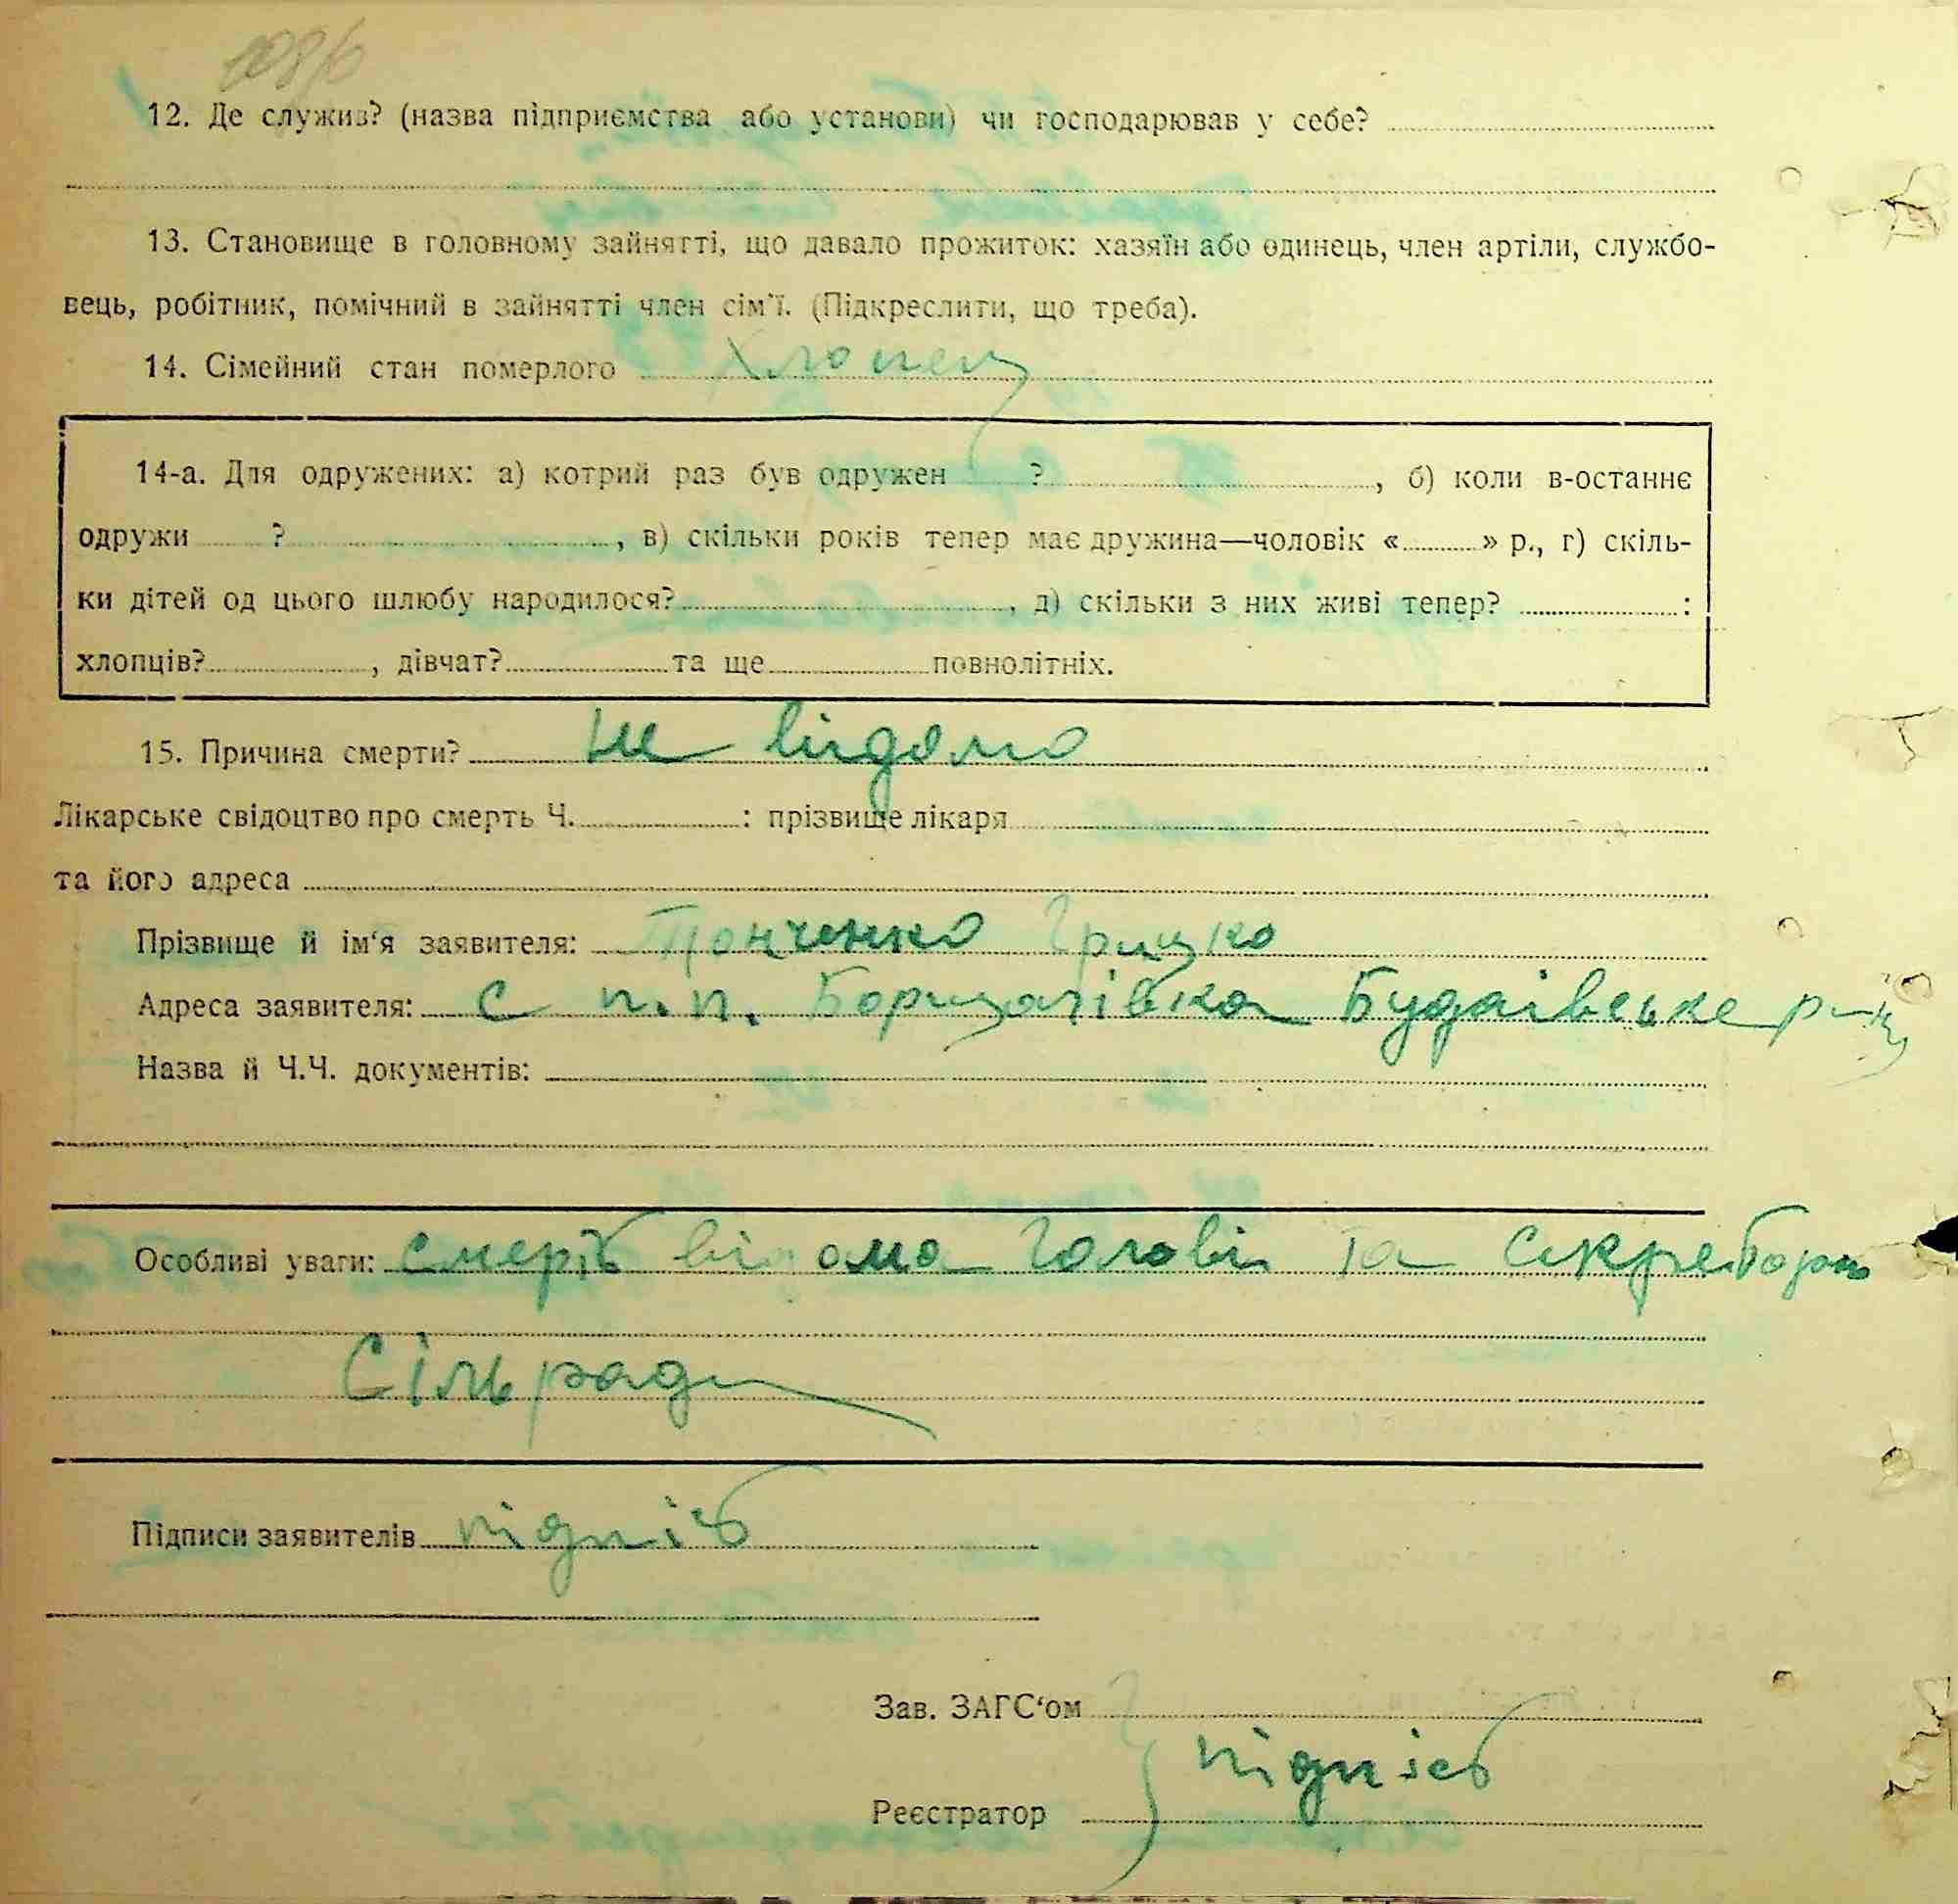 12. Де служив? (назва підприємства або установи) чи господарював у себе?
13. Становище в головному зайнятті, що давало прожиток: хазяїн або одинець, член артіли, службо-
вець, робітник, помічний в зайнятті член сім'ї. (Підкреслити, що треба).
14. Сімейний стан померлого Хлопец
14-а. Для одружених: а) котрий раз був одружен ? , б) коли в-останнє
одружи ? , в) скільки років тепер має дружина—чоловік « » р., г) скіль-
ки дітей од цього шлюбу народилося? , д) скільки з них живі тепер? :
хлопців? , дівчат? та ще повнолітніх.
15. Причина смерти? не відомо
Лікарське свідоцтво про смерть Ч. : прізвище лікаря
та його адреса
Прізвище й ім'я заявителя: Грицко
Адреса заявителя: с п.п. Борщагівка Будаївське
Назва й Ч.Ч. документів:
Особливі уваги: смерть відома Голові та
Сільради
Підписи заявителів підпис
Зав. ЗАГС'ом
підпис
Реєстратор